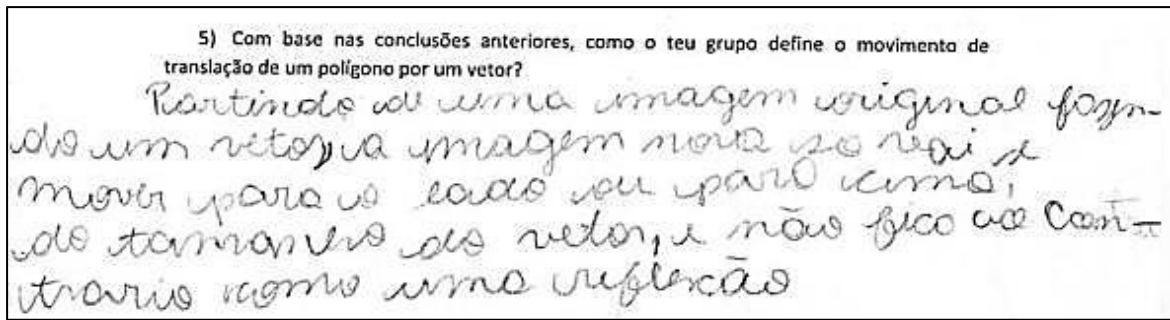 5) Com base nas conclusões anteriores, como o teu grupo define o movimento de
translação de um polígono por um vetor?
Partindo de uma imagem original fazen-
do um vetor, a imagem nova so vai se
mover para o lado ou para cima,
do tamanho do vetor, e não fica ao con-
trario como uma reflexão